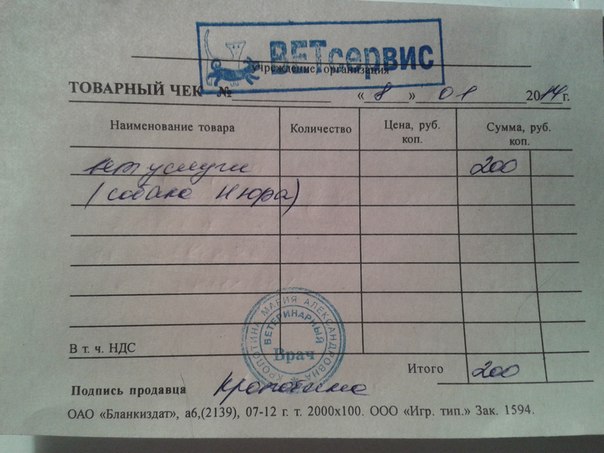 ВЕТсервис
учреждение, организация
ТОВАРНЫЙ ЧЕК № « 8 » 01 2014 г.
Наименование товара Количество Цена, руб. коп. Сумма, руб. коп.
вет услуги 200
(собака Нюра)
КРОПОТИНА МАРИЯ АЛЕКСАНДРОВНА
ВЕТЕРИНАРНЫЙ
Врач
В т. ч. НДС
Итого 200
Подпись продавца Кропотина
ОАО «Бланкиздат», а6,(2139), 07-12 г. т. 2000х100. ООО «Игр. тип.» Зак. 1594.